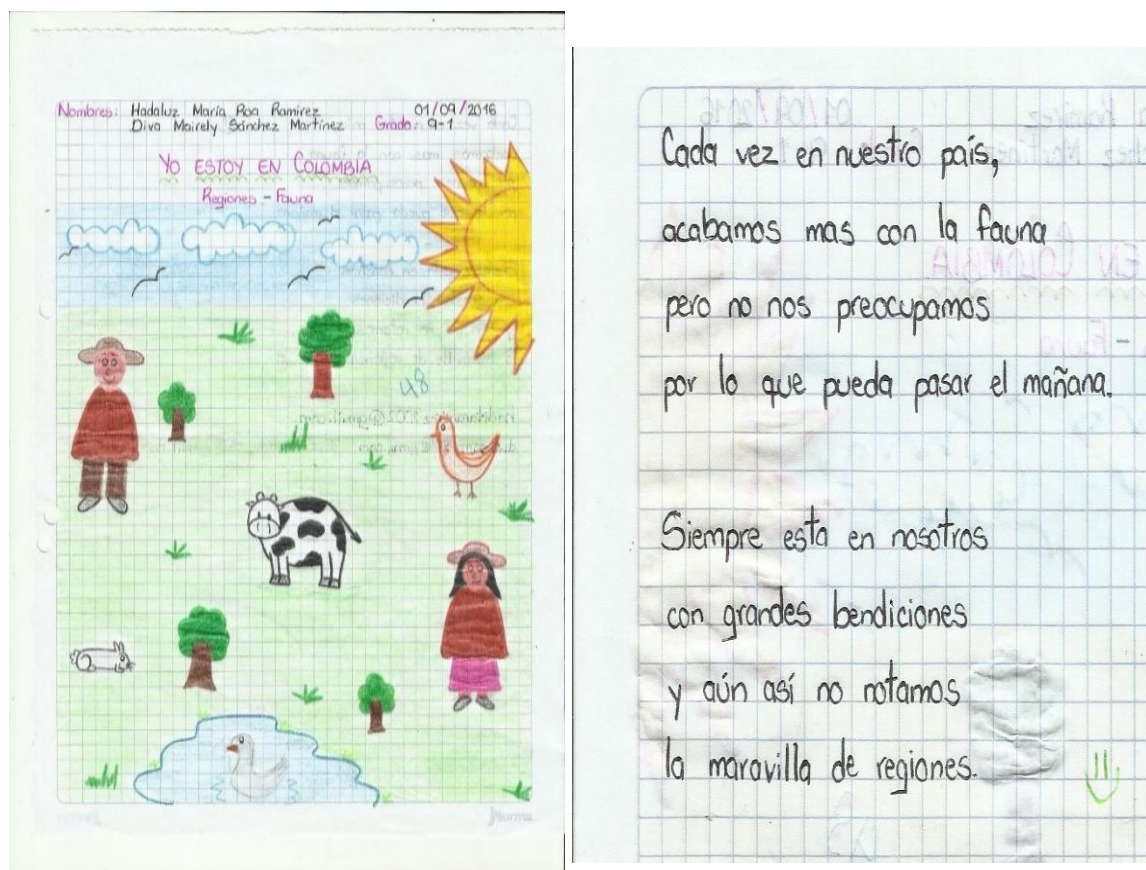 Nombres: Hadaluz María Roa Ramirez 01/09/2016
Diva Mairely Sánchez Martínez Grado: 9-1
YO ESTOY EN COLOMBIA
Regiones - Fauna
48
Norma
Cada vez en nuestro país,
acabamos mas con la fauna
pero no nos preocupamos
por lo que pueda pasar el mañana.
Siempre esta en nosotros
con grandes bendiciones
y aún así no notamos
la maravilla de regiones.